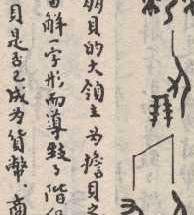 朋貝的大領主为擔貝之
解一字形而導致了階
貝是否已成为貨幣。商